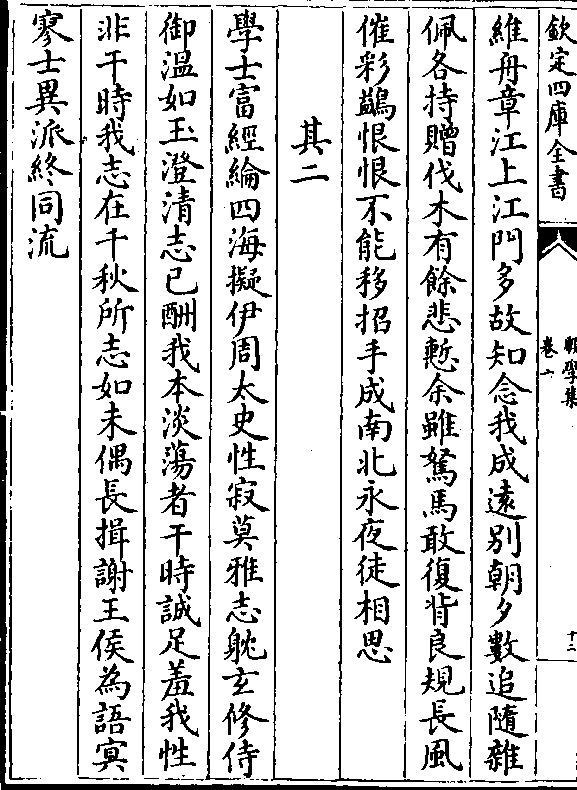 欽定四庫全書
卷六
十二
維舟章江上江門多故知念我成遠别朝夕數追隨雜
佩各持贈伐木有餘悲慙余雖駑馬敢復背良規長風
催彩鷁恨恨不能移招手成南北永夜徒相思
其二
學士富經綸四海擬伊周太史性寂莫雅志躭玄修侍
御溫如玉澄清志已酬我本淡蕩者干時誠足羞我性
非干時我志在千秋所志如未偶長揖謝王侯為語寅
寥士異派終同流